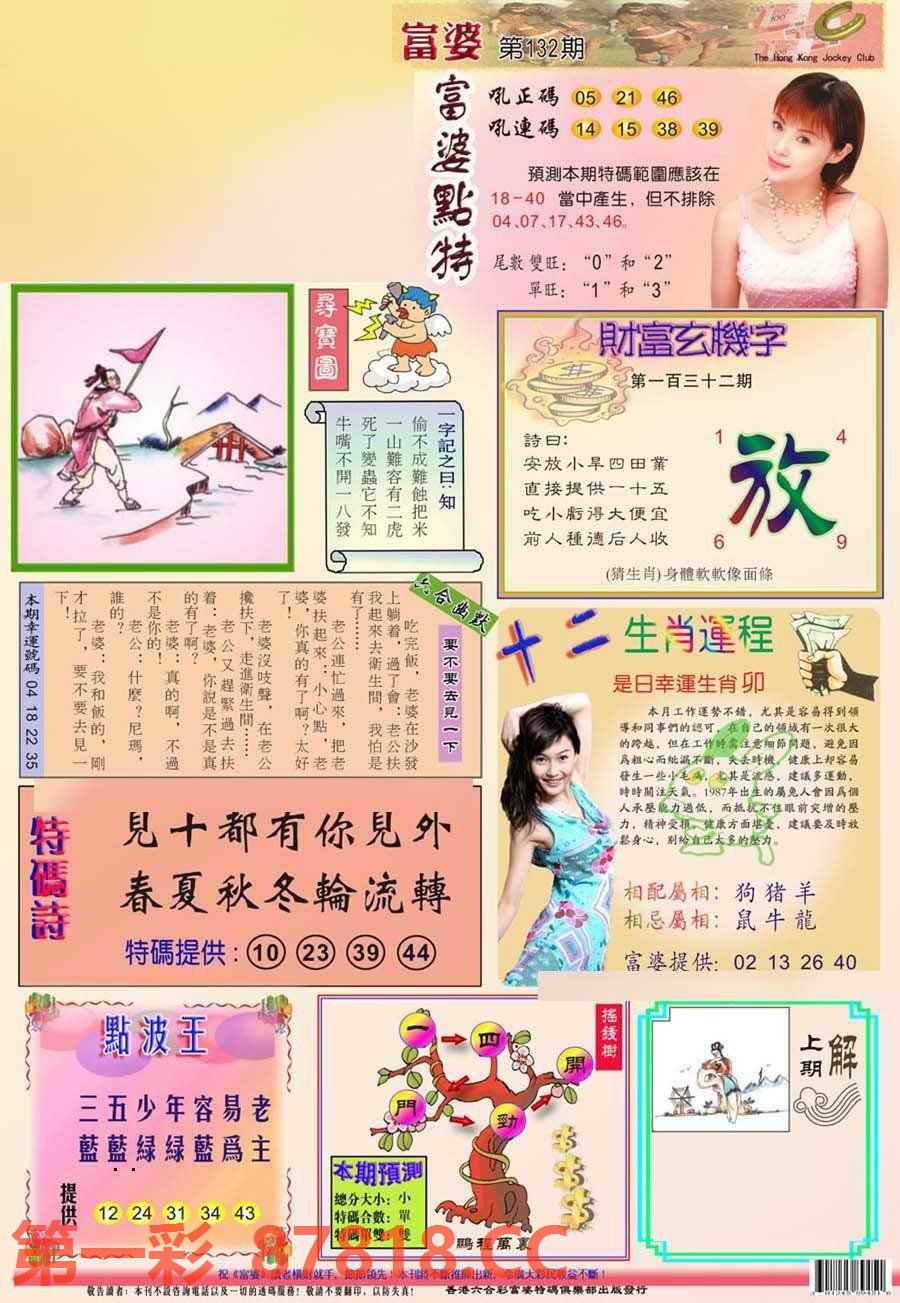 富婆 第132期
The Hong Kong Jockey Club
富婆點特
吼正碼 05 21 46
吼連碼 14 15 38 39
預測本期特碼範圍應該在
18-40 當中產生，但不排除
04、07、17、43、46。
尾數 雙旺：“0”和“2”
單旺：“1”和“3”
尋寶圖
一字記之曰：知
偷不成難蝕把米
一山難容有二虎
死了變蟲它不知
牛嘴不開一八發
財富玄機字
第一百三十二期
詩曰：
安放小旱四田業
直接提供一十五
吃小虧得大便宜
前人種德后人收
1 4
放
6 9
(猜生肖)身體軟軟像面條
六合幽默
要不要去見一下
吃完飯，老婆在沙發
上躺着，過了會：老公扶
我起來去衛生間，我怕是
有了……
老公連忙過來，把老
婆扶起來：小心點，老
婆，你真的有了啊？太好
了！
老婆沒吱聲，在老公
攙扶下，走進衛生間……
老公又趕緊過去扶
着：老婆，你說是不是真
的有了啊？
老婆：真的啊，不過
不是你的！
老公：什麼？尼瑪，
誰的？
老婆：我和飯的，剛
才拉了，要不要去見一
下！
本期幸運號碼 04 18 22 35
十二生肖運程
是日幸運生肖 卯
本月工作運勢不錯，尤其是容易得到領
導和同事們的認可，在自己的領域有一次很大
的跨越，但在工作時需注意細節問題，避免因
爲粗心而紕漏不斷，失去時機，健康上却容易
發生一些小毛病，尤其是流感，建議多運動，
時時關注天氣。1987年出生的屬兔人會因爲個
人承壓能力過低，而抵抗不住眼前突增的壓
力，精神受損，健康方面堪憂，建議要及時放
鬆身心，别給自己太多的壓力。
相配屬相：狗豬羊
相忌屬相：鼠牛龍
富婆提供：02 13 26 40
特碼詩
見十都有你見外
春夏秋冬輪流轉
特碼提供：10 23 39 44
點波王
三五少年容易老
藍藍緑緑藍爲主
提供 12 24 31 34 43
搖錢樹
一 四 開
門 勁
本期預測
總分大小：小
特碼合數：單
特碼單雙：雙
鵬程萬裏
上期解
第一彩 87818.CC
祝《富婆》讀者橫財就手，節節領先！本刊特不斷推陳出新，令廣大彩民收益不斷！
敬告讀者：本刊不設咨詢電話以及一切的透碼服務！敬請不要翻印，以防失真！ 香港六合彩富婆特碼俱樂部出版發行